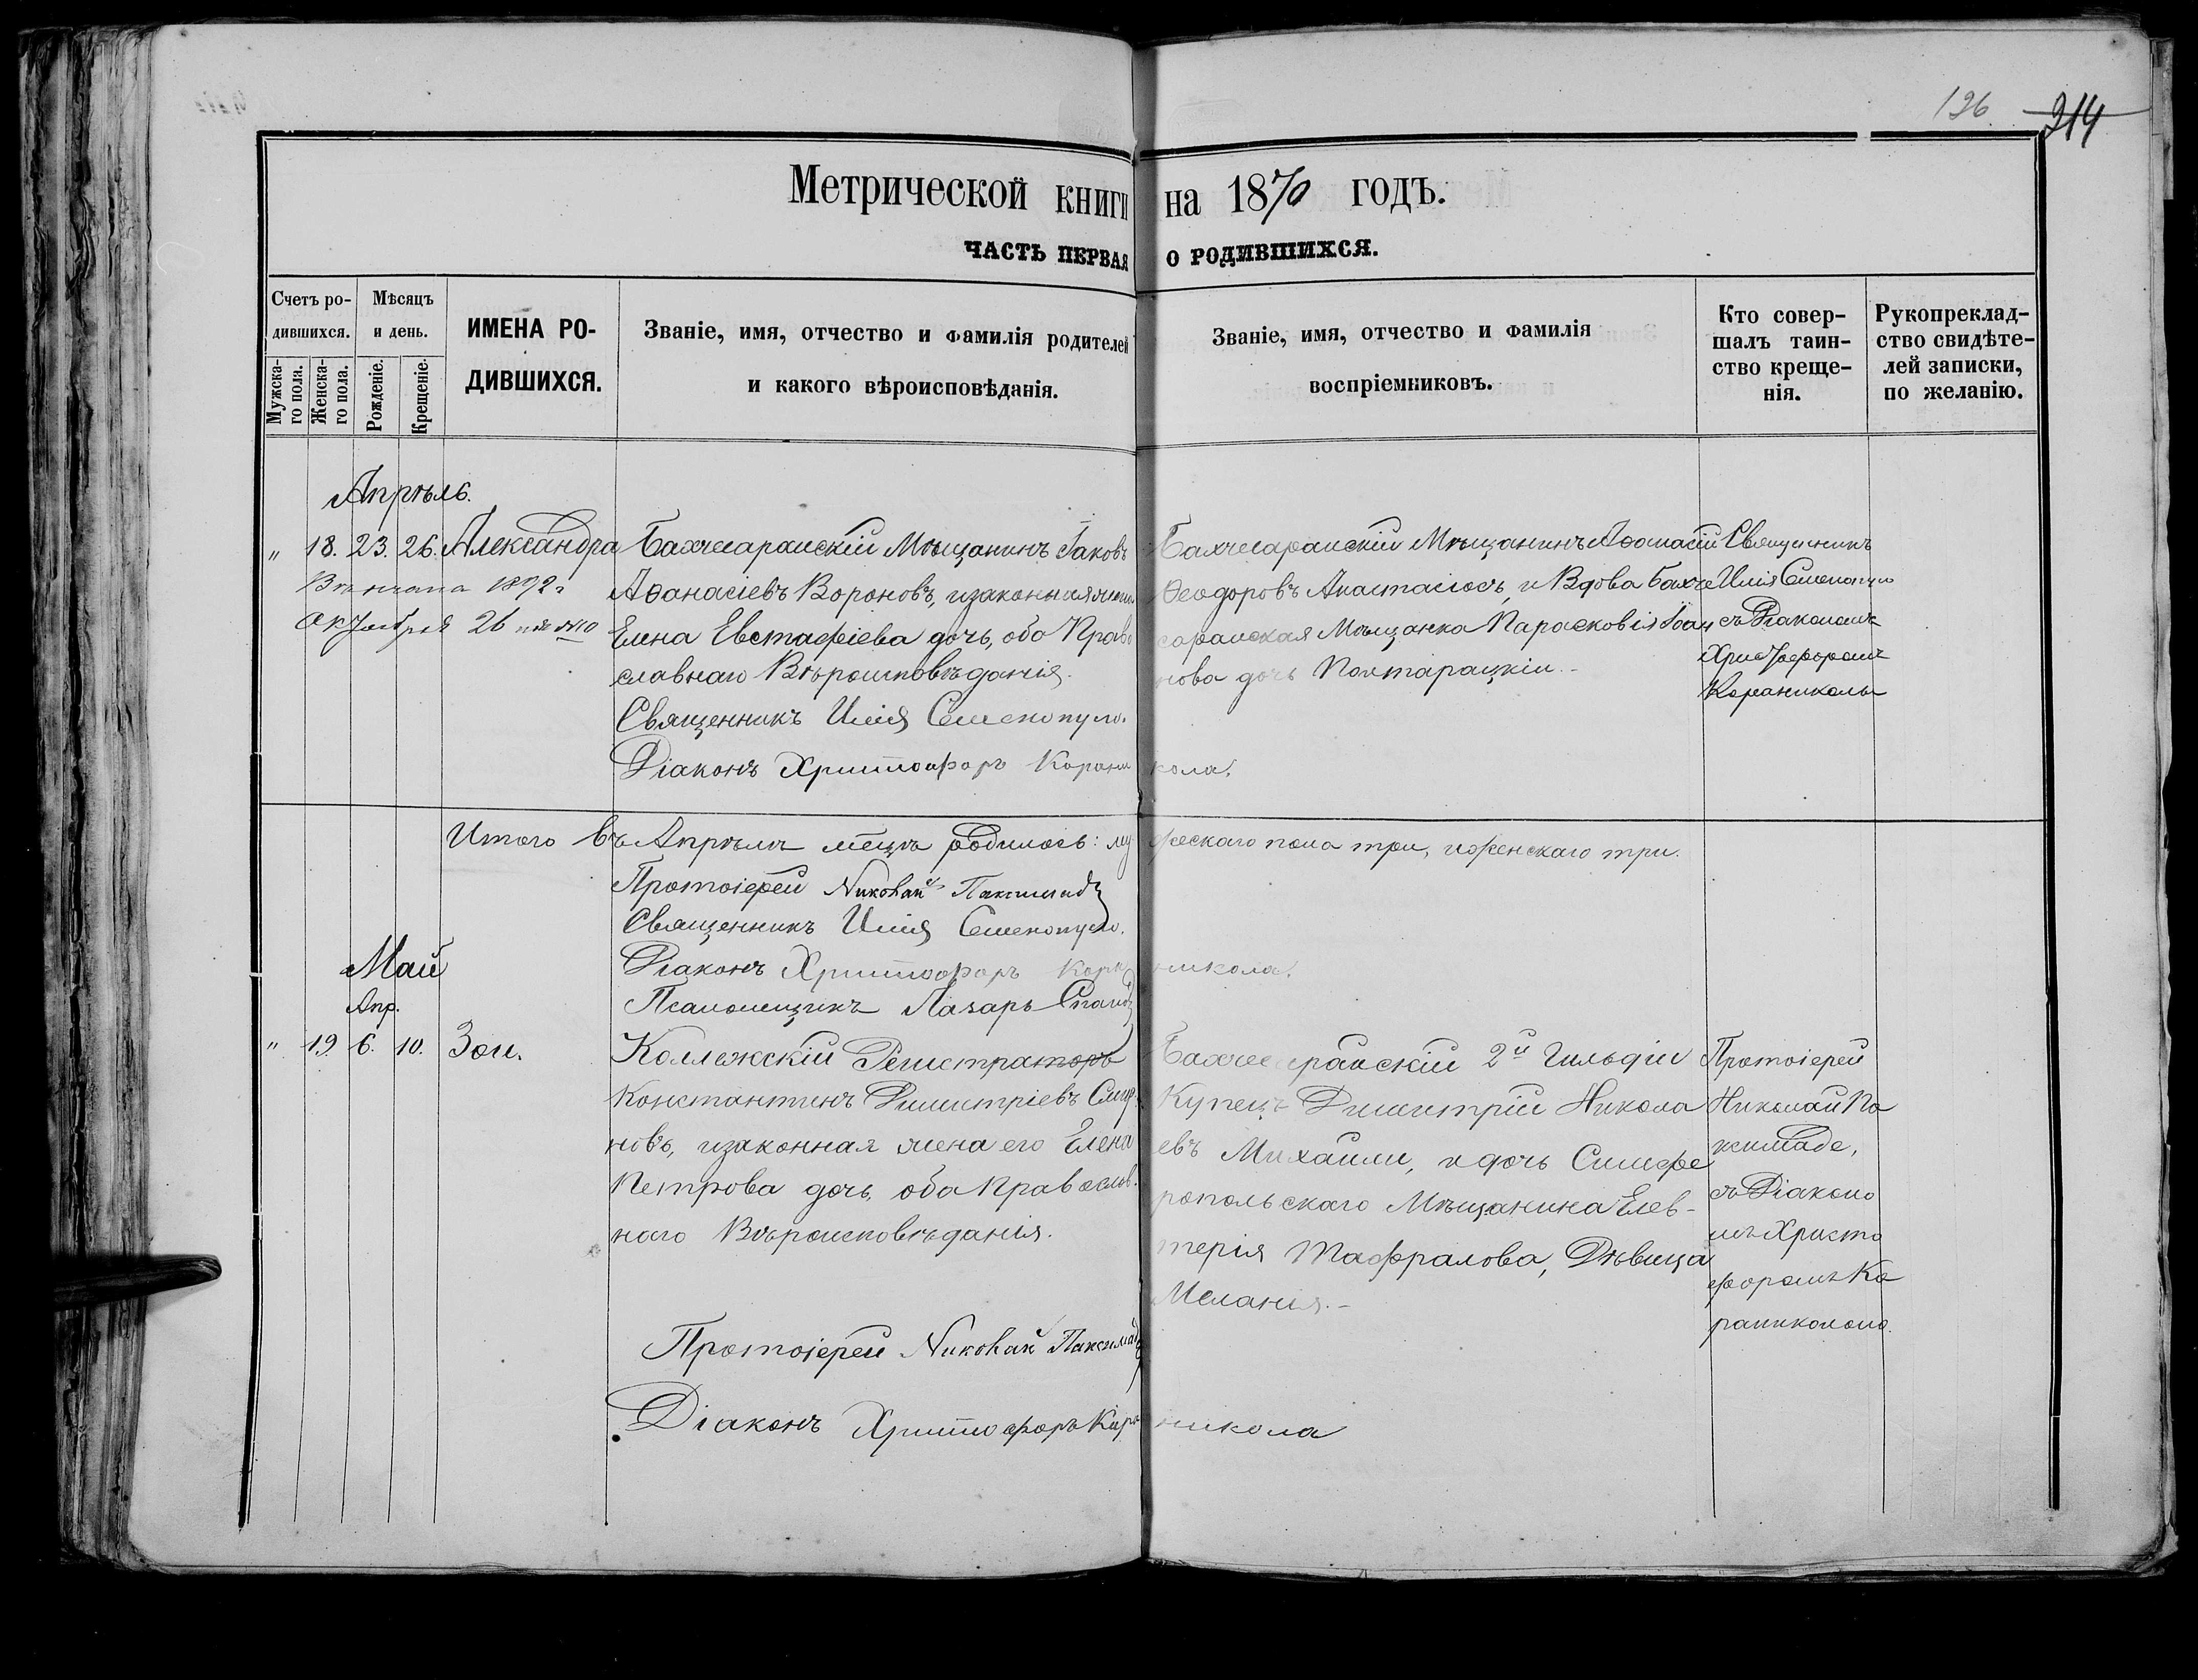 126. 214
Метрической книги на 1870 годъ.
ЧАСТЬ ПЕРВАЯ О РОДИВШИХСЯ.
Счетъ ро-
дившихся.
Мужска-
го пола.
Женска-
го пола.
Мѣсяцъ
и день.
Рожденіе.
Крещеніе.
ИМЕНА РО-
ДИВШИХСЯ.
Званіе, имя, отчество и фамилія родителей
и какого вѣроисповѣданія.
Званіе, имя, отчество и фамилія
воспріемниковъ.
Кто совер-
шалъ таин-
ство креще-
нія.
Рукопреклад-
ство свидѣте-
лей записки,
по желанію.
Апрѣль.
„ 18. 23. 26. Александра
Вѣнчана 1892 г
Октября 26 №10
Бахчисарайскій Мѣщанинъ Іаковъ
Аѳанасіевъ Вороновъ, и законная жена
Елена Евстафіева дочь, оба Право
славнаго Вѣроисповѣданія.
Священникъ Илія Семенопуло.
Діаконъ Христофоръ Карани кола.
Бахчисарайскій Мѣщанинъ Аѳанасій
Ѳеодоровъ Анастасіосъ, и Вдова Бахчи
сарайская Мѣщанка Парасковія Іоан
нова дочь Полтарацкіи.-
Священникъ
Илія Семенопуло
съ Діакономъ
Христофоромъ
Караникола
Итого въ Апрѣлѣ мѣсяцѣ родилось: му жескаго пола три, и женскаго три.
Протоіерей Николай Паксимадъ
Священникъ Илія Семенопуло.
Діаконъ Христофоръ Кара никола.
Псаломщикъ Лазарь
Май
Апр.
„ 19. 6. 10. Зои.
Коллежскій Регистраторъ
Константинъ Димитріевъ Смир
новъ, и законная жена его Елена
Петрова дочь, оба Православ.
наго Вѣроисповѣданія.
Протоіерей Николай Паксимадъ
Діаконъ Христофоръ Кара никола
Бахчисарайскій 2й Гильдіи
Купецъ Димитрій Никола
евъ Михаили, и дочь Симфе
ропольскаго Мѣщанина Елев-
терія Тафралова, Дѣвица
Меланія.-
Протоіерей
Николай Па
ксимаде,
съ Діаконо
мъ Христо
форомъ Ка
раниколою.